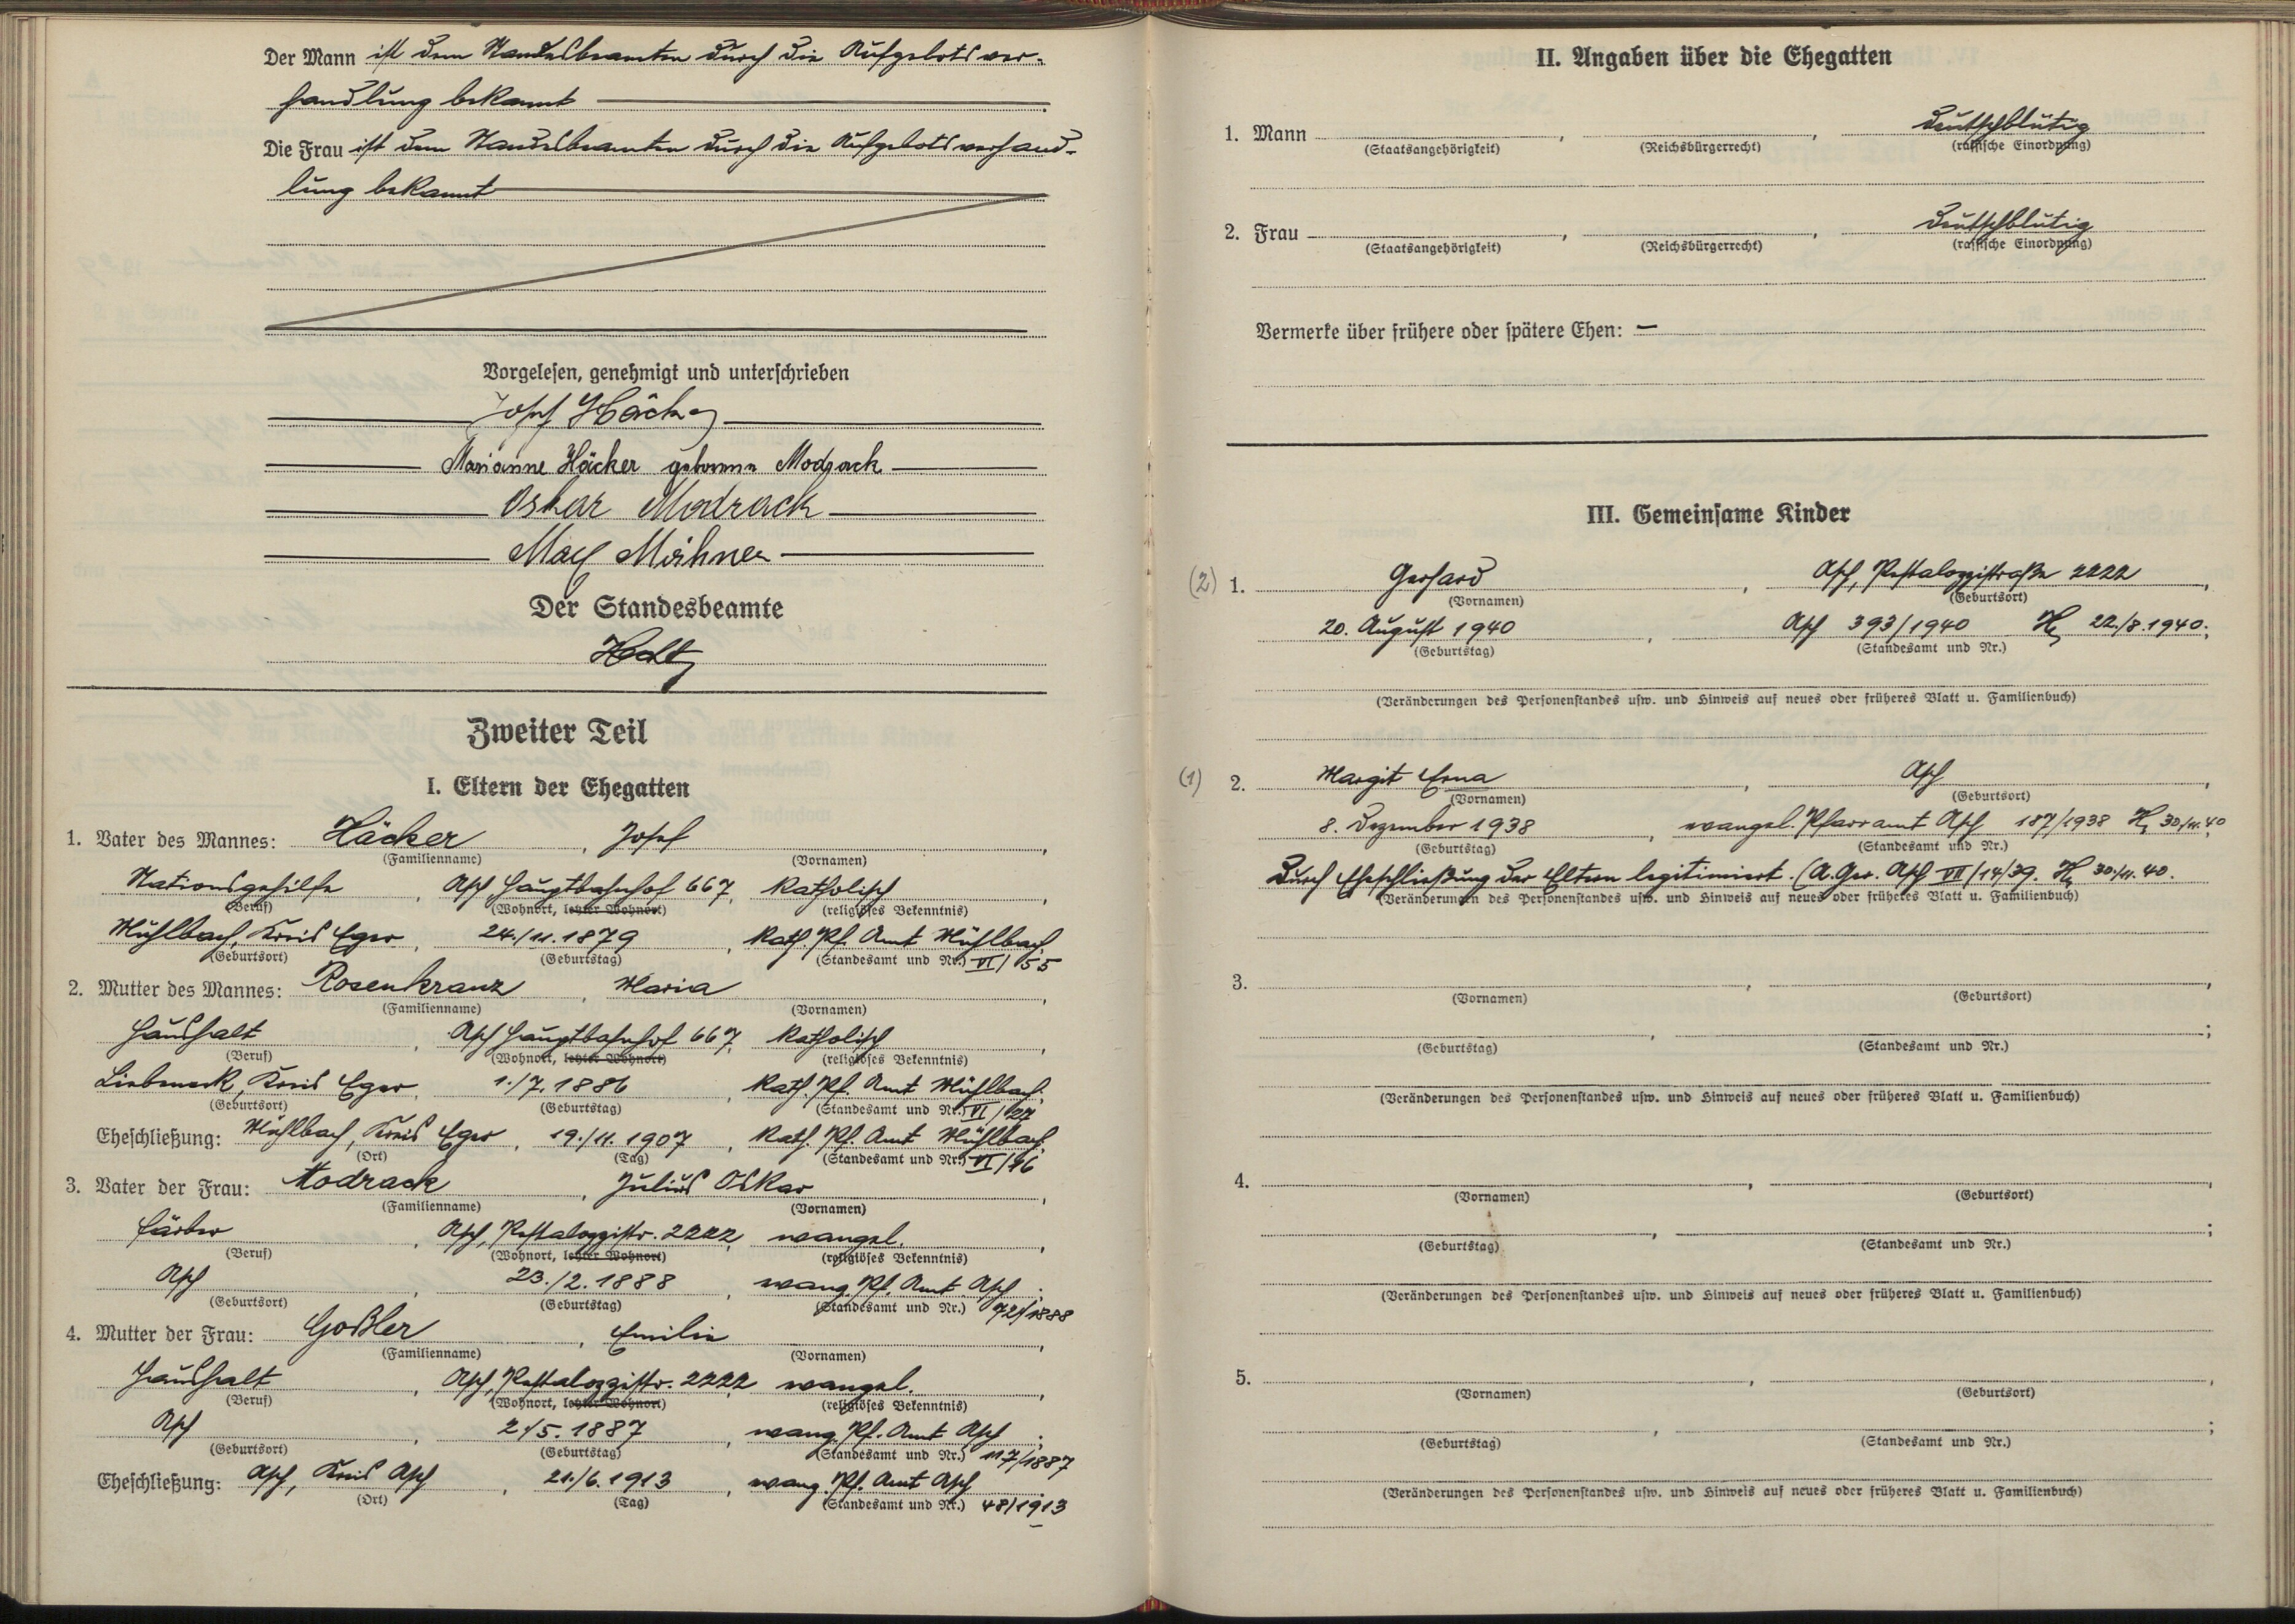 Der Mann ist dem Standesbeamten durch die Aufgebotsver-
handlung bekannt
Die Frau ist dem Standesbeamten durch die Aufgebotsverhand-
lung bekannt
Vorgelesen, genehmigt und unterschrieben
Josef Häcker
Marianne Häcker geborene Modrack
Oskar Modrack
Max
Der Standesbeamte
Zweiter Teil
I. Eltern der Ehegatten
1. Vater des Mannes: Häcker, Josef
(Familienname) (Vornamen)
Stationsgehilfe, Asch, Hauptbahnhof 667, katholisch,
(Beruf) (Wohnort, letzter Wohnort) (religiöses Bekenntnis)
Mühlbach, Kreis Eger, 24./11.1879, Kath. Pf. Amt Mühlbach;
(Geburtsort) (Geburtstag) (Standesamt und Nr.) VI/55
2. Mutter des Mannes: Rosenkranz, Maria
(Familienname) (Vornamen)
Haushalt, Asch Hauptbahnhof 667, katholisch,
(Beruf) (Wohnort, letzter Wohnort) (religiöses Bekenntnis)
Liebeneck, Kreis Eger, 1./7.1886, Kath. Pf. Amt Mühlbach;
(Geburtsort) (Geburtstag) (Standesamt und Nr.) VI/127
Eheschließung: Mühlbach, Kreis Eger, 19./11.1907, Kath. Pf. Amt Mühlbach.
(Ort) (Tag) (Standesamt und Nr.)
3. Vater der Frau: Modrack, Julius Oskar
(Familienname) (Vornamen)
Färber, Asch, Pestalozzistr. 2222, evangel.,
(Beruf) (Wohnort, letzter Wohnort) (religiöses Bekenntnis)
Asch, 23./2.1888, evang. Pf. Amt Asch;
(Geburtsort) (Geburtstag) (Standesamt und Nr.) 72/1888
4. Mutter der Frau: Goßler, Emilie
(Familienname) (Vornamen)
Haushalt, Asch, Pestalozzistr. 2222 evangel.,
(Beruf) (Wohnort, letzter Wohnort) (religiöses Bekenntnis)
Asch, 2./5.1887, evang. Pf. Amt Asch;
(Geburtsort) (Geburtstag) (Standesamt und Nr.) 117/1887
Eheschließung: Asch, Kreis Asch, 21./6.1913, evang. Pf. Amt Asch.
(Ort) (Tag) (Standesamt und Nr.) 48/1913
II. Angaben über die Ehegatten
1. Mann , , deutschblütig
(Staatsangehörigkeit) (Reichsbürgerrecht) (rassische Einordnung)
2. Frau , , deutschblütig
(Staatsangehörigkeit) (Reichsbürgerrecht) (rassische Einordnung)
Vermerke über frühere oder spätere Ehen: —
III. Gemeinsame Kinder
(2) 1. Gerhard, Asch, Pestalozzistraße 2222,
(Vornamen) (Geburtsort)
20. August 1940, Asch 393/1940 22./8.1940;
(Geburtstag) (Standesamt und Nr.)
(Veränderungen des Personenstandes usw. und Hinweis auf neues oder früheres Blatt u. Familienbuch)
(1) 2. Margit Erna, Asch,
(Vornamen) (Geburtsort)
8. Dezember 1938, evangel. Pfarramt Asch 187/1938 30./11.40;
(Geburtstag) (Standesamt und Nr.)
Durch Eheschließung der Eltern legitimiert. (A. Ger. Asch VII/14/39. 30./11.40.
(Veränderungen des Personenstandes usw. und Hinweis auf neues oder früheres Blatt u. Familienbuch)
3. , ,
(Vornamen) (Geburtsort)
, ;
(Geburtstag) (Standesamt und Nr.)
(Veränderungen des Personenstandes usw. und Hinweis auf neues oder früheres Blatt u. Familienbuch)
4. , ,
(Vornamen) (Geburtsort)
, ;
(Geburtstag) (Standesamt und Nr.)
(Veränderungen des Personenstandes usw. und Hinweis auf neues oder früheres Blatt u. Familienbuch)
5. , ,
(Vornamen) (Geburtsort)
, ;
(Geburtstag) (Standesamt und Nr.)
(Veränderungen des Personenstandes usw. und Hinweis auf neues oder früheres Blatt u. Familienbuch)